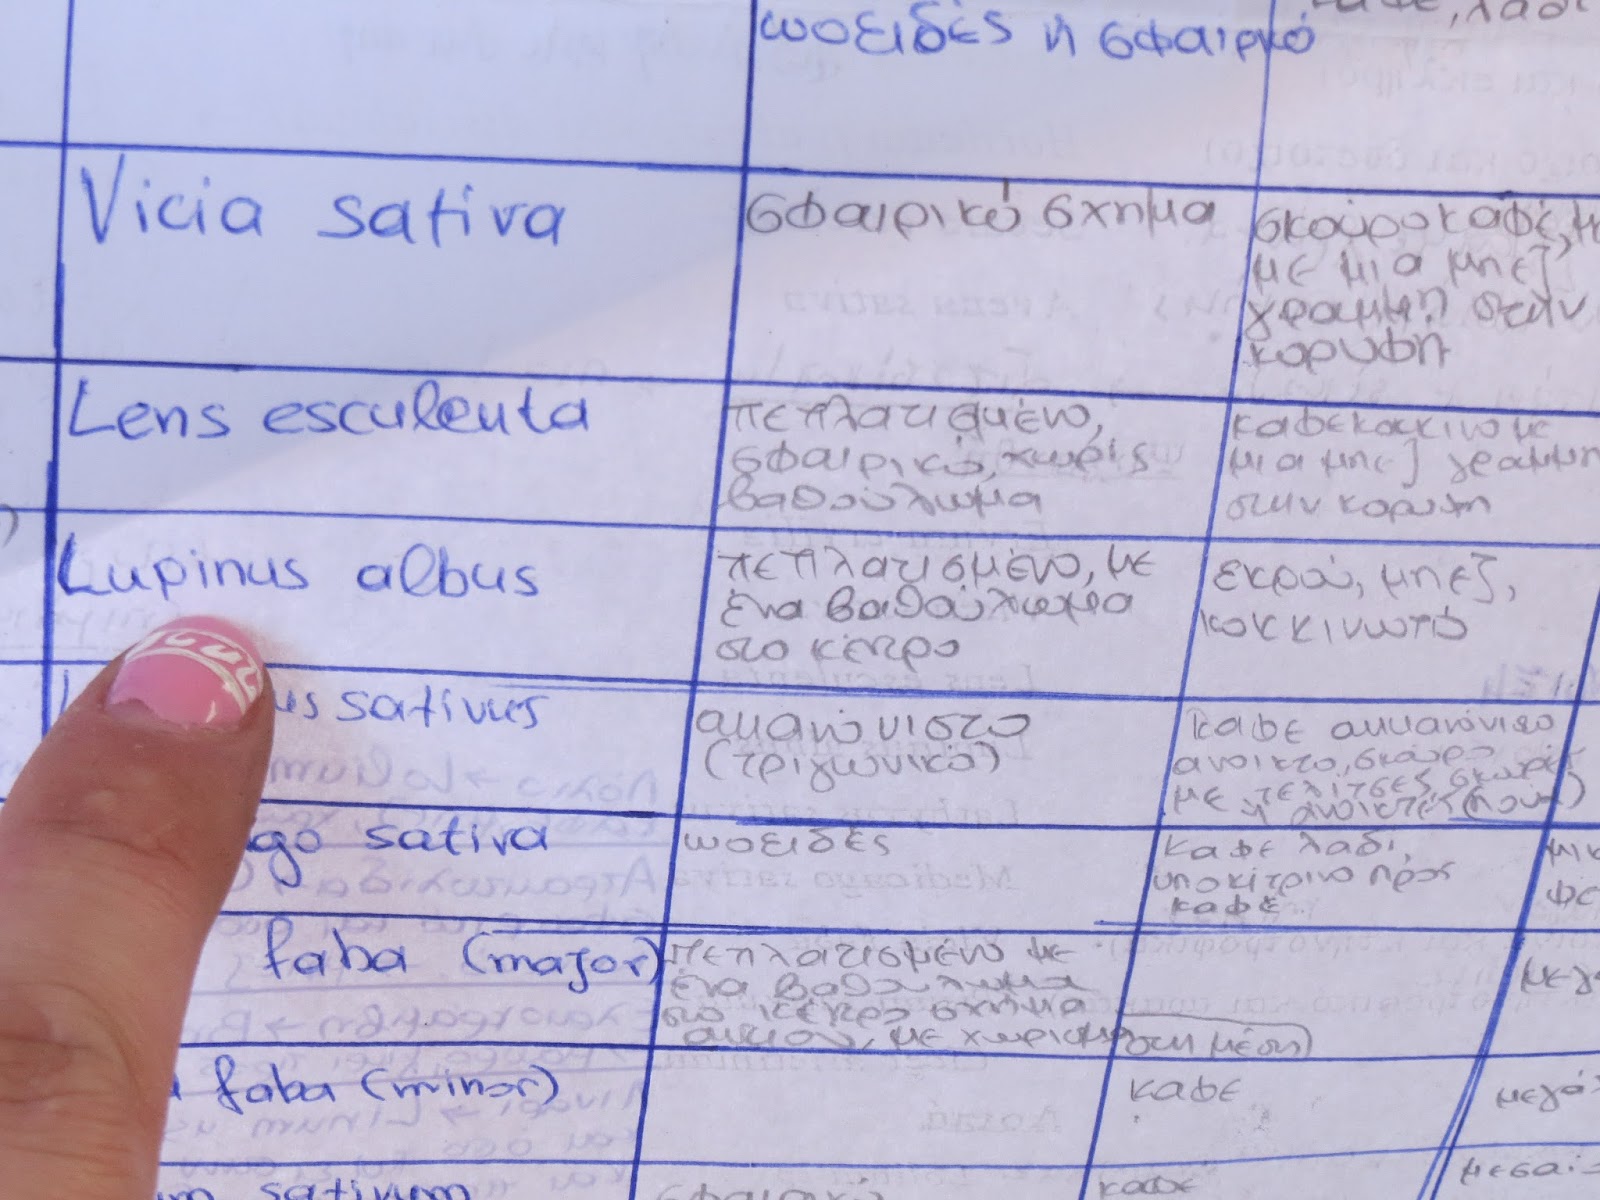 ωοειδές ή σφαιρικό
Vicia sativa
σφαιρικό σχήμα
σκούρο καφέ,
με μια μπεζ
γραμμή στην
κορυφή
Lens esculenta
πεπλατισμένο,
σφαιρικό, χωρίς
βαθούλωμα
καφεκοκκινο με
μια μπεζ γραμμη
στην κορυφη
Lupinus albus
πεπλατισμένο, με
ένα βαθούλωμα
στο κέντρο
εκρού, μπεζ,
κοκκινωπό
us sativus
ακανόνιστο
(τριγωνικό)
καφε ακκανόνιστο
ανοικτο, σκούρο
με τελίτσες σκούρες
ή ανοικτές
go sativa
ωοειδές
καφε λαδι,
υποκίτρινο προς
καφέ
faba (major)
πεπλατισμένο με
ένα βαθούλωμα
στο κέντρο σχήμα
με χώρισμα στη μέση)
faba (minor)
καφε
μεγά
um sativum
σφαιρικό
καφε
μεσαί